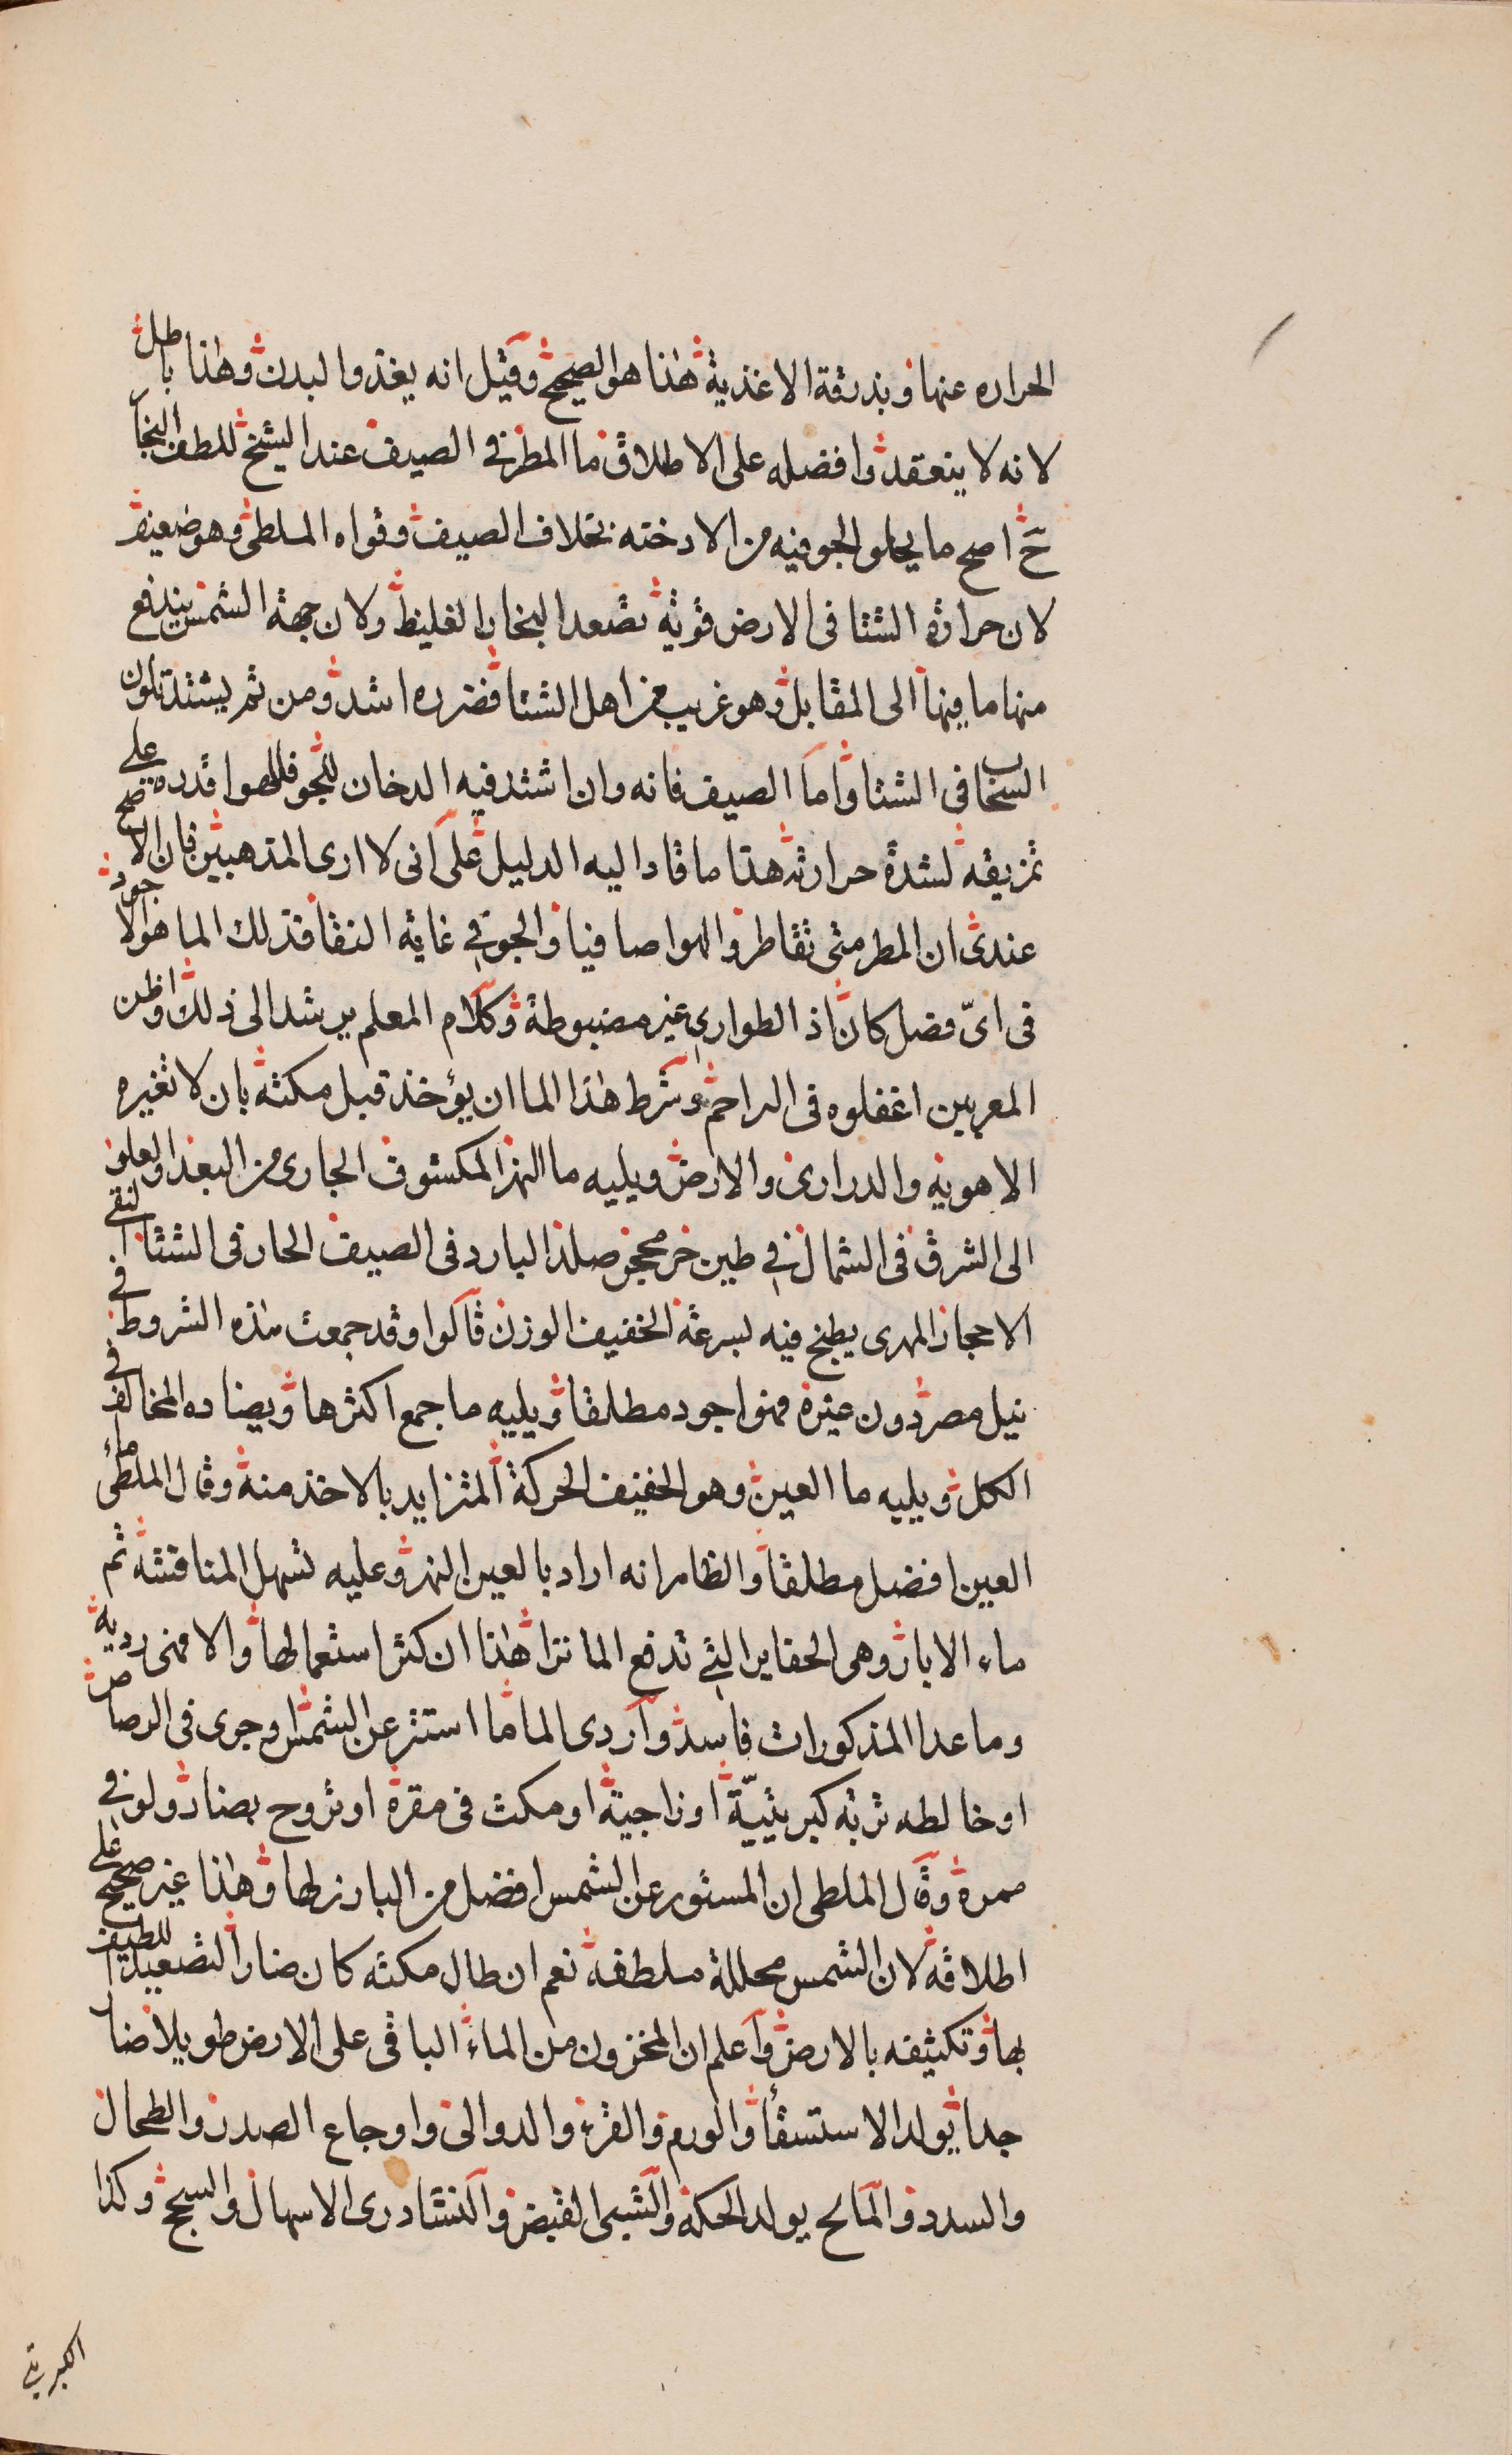 الحراره عنها وبذرقة الاغذية هذا هو الصحيح وقيل انه يغذو البدن وهذا باطل
لانه لا ينعقد وافضله على الاطلاق ما المطر في الصيف عند الشيخ للطف البخار
ح اصح ما يخلو الجو فيه من الادخنه بخلاف الصيف وقواه الملطى وهو ضعيف
لان حرارة الشتا فى الارض قوية تصعد البخار الغليظ ولان جهة الشمس يندفع
منها ما فيها الى المقابل وهو غريب من اهل الشتا فضرره اشد ومن ثم يشتد تلون
السحاب فى الشتا واما الصيف فانه وان اشتد فيه الدخان للجو فللهوا قدرة على
تمزيقه لشدة حرارته هذا ما قاد اليه الدليل على انى لا ارى المذهبين فان الاصح
عندى ان المطر متى تقاطر والهوا صافيا والجو في غاية النقا فذلك الما هو الاجود
فى اىّ فصل كان اذ الطوارى غير مضبوطة وكلام المعلم يرشد الى ذلك واظن
المعربين اغفلوه فى التراجم وشرط هذا الما ان يؤخذ قبل مكثه بان لا تغيره
الاهويه والدرارى والارض ويليه ما النهر المكشوف الجارى من البعد والعلو
الى الشرق فى الشمال في طين حر محجر صلد البارد فى الصيف الحار فى الشتا النقى
الاحجار المهرى يطبخ فيه لسرعة الخفيف الوزن قالوا وقد جمعت هذه الشروط في
نيل مصر دون غيره فهو اجود مطلقا ويليه ما جمع اكثرها ويضاده المخالف في
الكل ويليه ما العين وهو الخفيف الحركة المتزايد بالاخذ منه وقال الملطى ماء
العين افضل مطلقا والظاهر انه اراد بالعين النهر وعليه تسهل المناقشة ثم
ماء الابار وهى الحفاير التي تدفع الما نزا هذا ان كثر استعمالها والا فهى ردية
وما عدا المذكورات فاسد واردى الما ما استتر عن الشمس وجرى فى الرصاص
او خالطه تربه كبريتيّة او زاجية او مكث فى مقره او تروح بضار ولو في
ممره وقال الملطى ان المستور عن الشمس افضل من البارز لها وهذا غير صحيح على
اطلاقه لان الشمس محللة ملطفة نعم ان طال مكثه كان ضارا لتصعيد اللطيف
بها وتكثيفه بالارض واعلم ان المخزون من الماء الباقى على الارض طويلا ضار
جدا يولد الاستسقأ والورم والقرء والدوالى واوجاع الصدر والطحال
والسدد والمالح يولد الحكة والشبى القبض والنشادرى الاسهال والسحج وكذا
الكبريتي